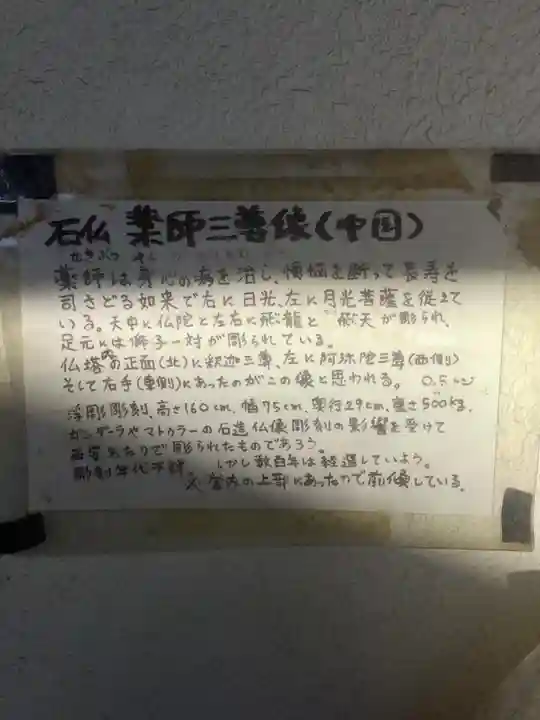 石仏 薬師三尊像(中国)
せきぶつ やくし
薬師は身心の病を治し、煩悩を断って長寿を
司さどる如来で右に日光、左に月光菩薩を従えて
いる。天中に仏陀と左右に飛龍と 飛天が彫られ、
足元には獅子一対が彫られている。
仏塔内の正面(北)に釈迦三尊、左に阿弥陀三尊(西側)
そして右手(東側)にあったのがこの像と思われる。 0.5
浮彫彫刻、高さ160cm、幅75cm、奥行29cm、重さ500kg、
ガンダーラやマトカラーの石造仏像彫刻の影響を受けて
あたりで彫られたものであろう。
彫刻年代不詳。 しかし数百年は経過していよう。
の上部にあったので前傾している。